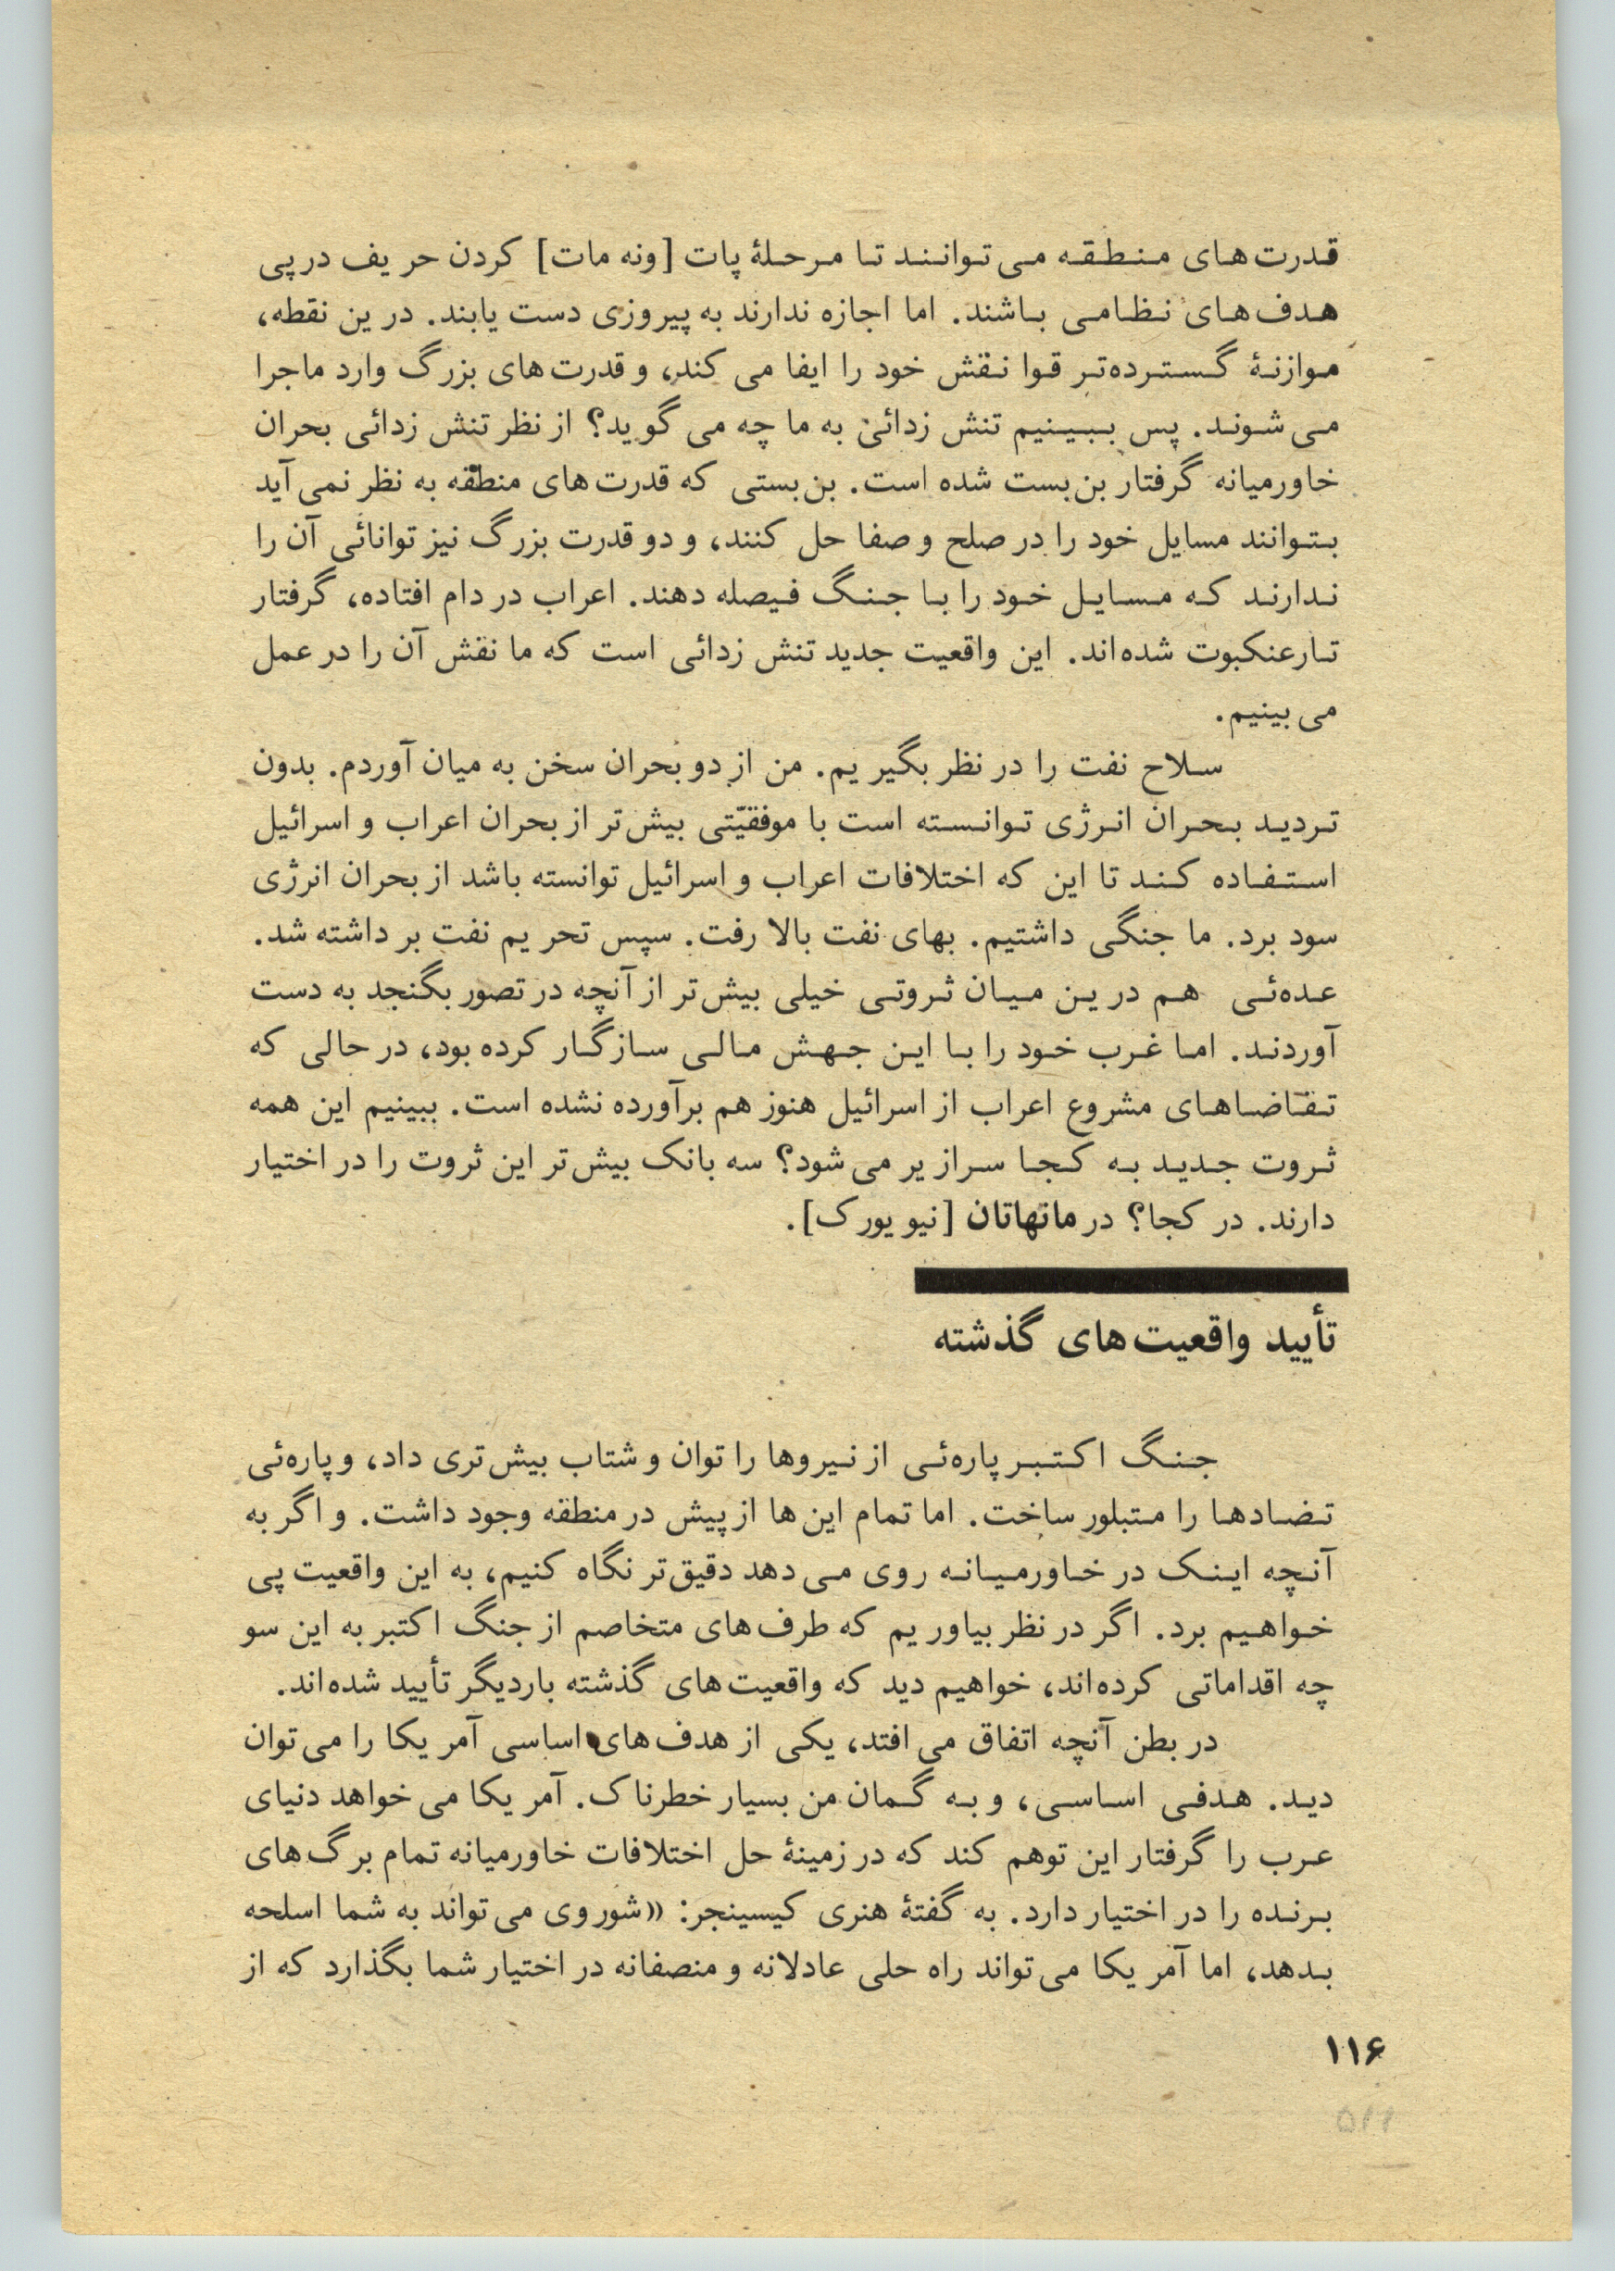 قدرت‌های منطقه می‌توانند تا مرحلهٔ پات [ونه مات] کردن حریف درپی
هدف‌های نظامی باشند. اما اجازه ندارند به پیروزی دست یابند. درین نقطه،
موازنهٔ گسترده‌تر قوا نقش خود را ایفا می کند، و قدرت‌های بزرگ وارد ماجرا
می‌شوند. پس ببینیم تنش زدائی به ما چه می گوید؟ از نظر تنش زدائی بحران
خاورمیانه گرفتار بن‌بست شده است. بن‌بستی که قدرت‌های منطقه به نظر نمی‌آید
بتوانند مسایل خود را در صلح و صفا حل کنند، و دو قدرت بزرگ نیز توانائی آن را
ندارند که مسایل خود را با جنگ فیصله دهند. اعراب در دام افتاده، گرفتار
تارعنکبوت شده‌اند. این واقعیت جدید تنش زدائی است که ما نقش آن را در عمل
می‌بینیم.
سلاح نفت را در نظر بگیریم. من از دو بحران سخن به میان آوردم. بدون
تردید بحران انرژی توانسته است با موفقیّتی بیش‌تر از بحران اعراب و اسرائیل
استفاده کند تا این که اختلافات اعراب و اسرائیل توانسته باشد از بحران انرژی
سود برد. ما جنگی داشتیم. بهای نفت بالا رفت. سپس تحریم نفت بر داشته شد.
عده‌ئی هم درین میان ثروتی خیلی بیش‌تر از آنچه در تصور بگنجد به دست
آوردند. اما غرب خود را با این جهش مالی سازگار کرده بود، در حالی که
تقاضاهای مشروع اعراب از اسرائیل هنوز هم برآورده نشده است. ببینیم این همه
ثروت جدید به کجا سرازیر می‌شود؟ سه بانک بیش‌تر این ثروت را در اختیار
دارند. در کجا؟ در مانهاتان [نیویورک].
تأیید واقعیت‌های گذشته
جنگ اکتبر پاره‌ئی از نیروها را توان و شتاب بیش‌تری داد، و پاره‌ئی
تضادها را متبلور ساخت. اما تمام این‌ها از پیش در منطقه وجود داشت. و اگر به
آنچه اینک در خاورمیانه روی می‌دهد دقیق‌تر نگاه کنیم، به این واقعیت پی
خواهیم برد. اگر در نظر بیاوریم که طرف‌های متخاصم از جنگ اکتبر به این سو
چه اقداماتی کرده‌اند، خواهیم دید که واقعیت‌های گذشته باردیگر تأیید شده‌اند.
در بطن آنچه اتفاق می‌افتد، یکی از هدف‌های اساسی آمریکا را می‌توان
دید. هدفی اساسی، و به گمان من بسیار خطرناک. آمریکا می‌خواهد دنیای
عرب را گرفتار این توهم کند که در زمینهٔ حل اختلافات خاورمیانه تمام برگ‌های
برنده را در اختیار دارد. به گفتهٔ هنری کیسینجر: «شوروی می‌تواند به شما اسلحه
بدهد، اما آمریکا می‌تواند راه حلی عادلانه و منصفانه در اختیار شما بگذارد که از
۱۱۶